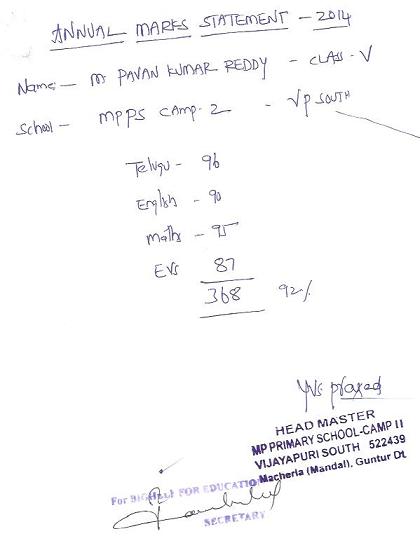 ANNUAL MARKS STATEMENT - 2014
Name:- M PAVAN KUMAR REDDY - CLASS - V
School - MPPS CAMP-2 - VP SOUTH
Telugu - 96
English - 90
maths - 95
EVS 87
368 92%
HEAD MASTER
MP PRIMARY SCHOOL-CAMP II
VIJAYAPURI SOUTH 522439
Macherla (Mandal), Guntur Dt.
FOR EDUCATION
SECRETARY